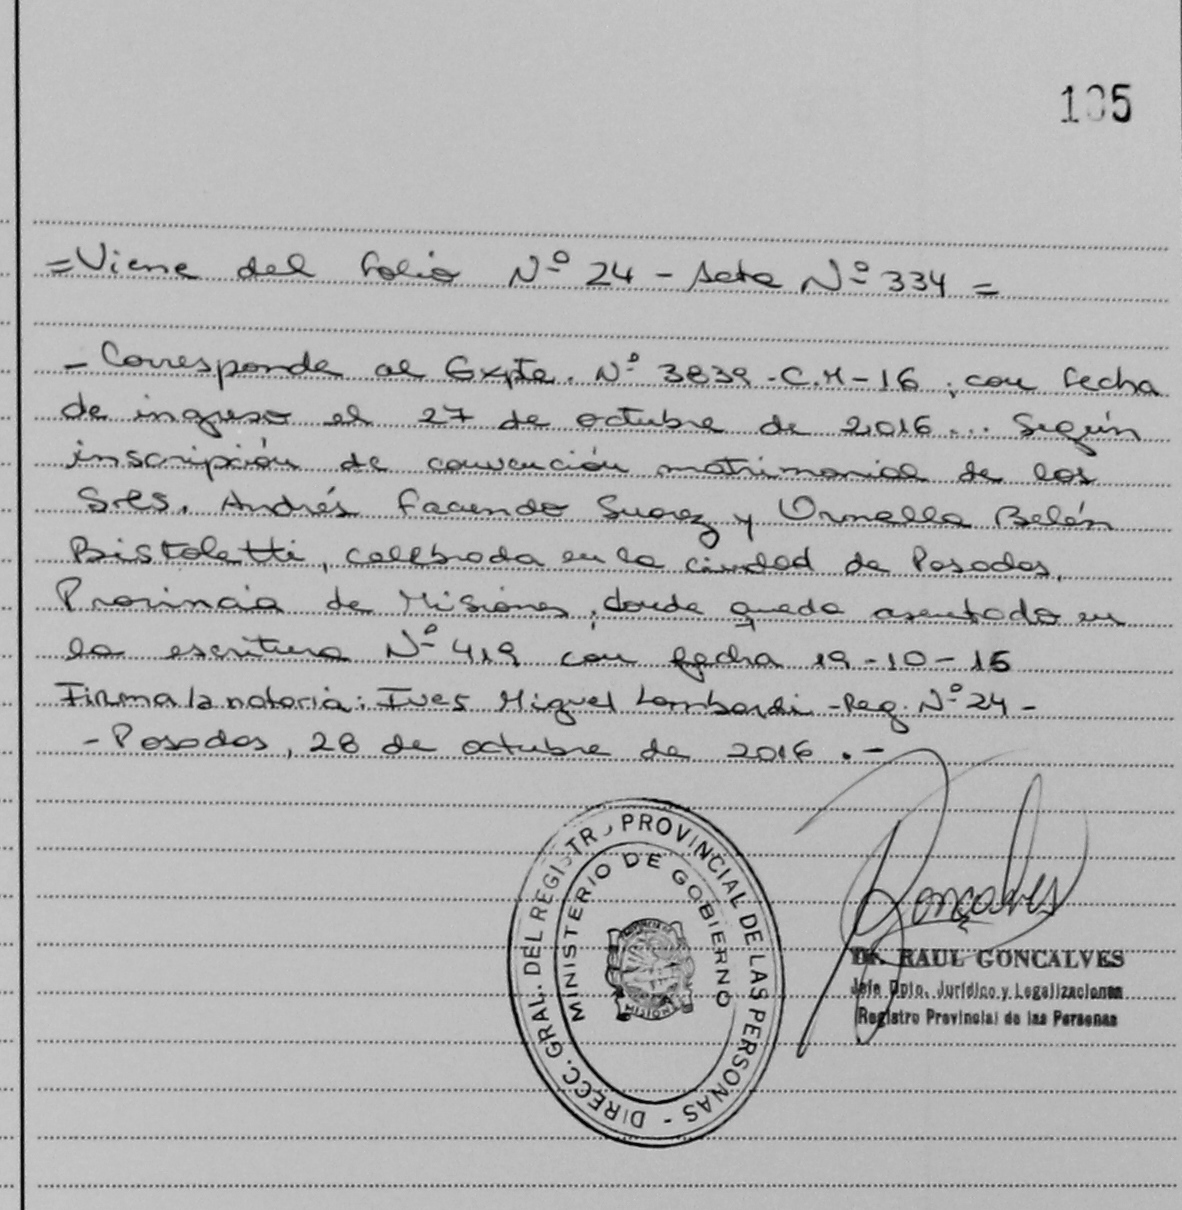 105
=Viene del folio Nº 24 - Acta Nº 334 =
- Corresponde al Expte. Nº 3839-C.M-16, con fecha
de ingreso el 27 de octubre de 2016... Según
inscripción de convención matrimonial de los
Sres. Andrés Facundo Suarez y Ornella Belén
Bistoletti, celebrada en la ciudad de Posadas,
Provincia de Misiones, donde queda asentado en
la escritura Nº 419 con fecha 19-10-16
Firma la notaria: Ives Miguel Lombardi - Reg. Nº 24 -
- Posadas, 28 de octubre de 2016.-
DIRECC. GRAL. DEL REGISTRO PROVINCIAL DE LAS PERSONAS -
MINISTERIO DE GOBIERNO
MISIONES
Goncalves
Dr. RAUL GONCALVES
Jefe Dpto. Jurídico y Legalizaciones
Registro Provincial de las Personas